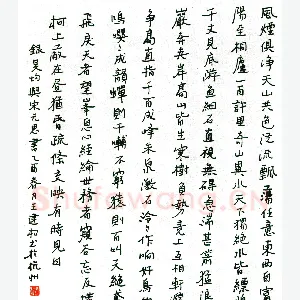 風煙俱淨天山共色從流飄蕩任意東西自富
陽至桐廬一百許里奇山異水天下獨絕水皆縹
千丈見底游魚細石直視無礙急湍甚箭猛浪
奔夾岸高山皆生寒樹負勢競上互相軒
爭高直指千百成峰泉水激石泠泠作響好鳥
鳴嚶嚶成韻蟬則千囀不窮猿則百叫無絕
飛戾天者望峯息心經綸世務者窺谷忘反橫
柯上蔽在晝猶昏疏條交映有時見日
錄吳均與宋元思書乙酉春月王建於杭州